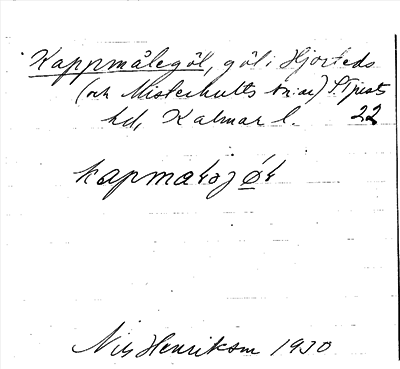 Kappmålegöl, göl i Hjorteds
(och Misterhults sn:ar) S. Tjusts
hd, Kalmar l. 22
Nils Henrikson 1930